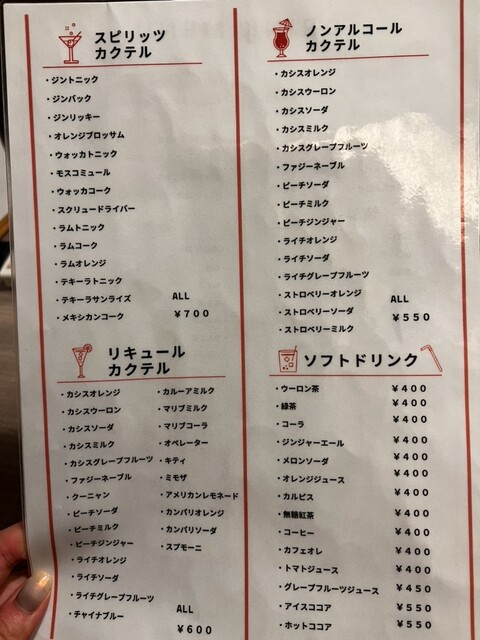 スピリッツ
カクテル
・ジントニック
・ジンバック
・ジンリッキー
・オレンジブロッサム
・ウォッカトニック
・モスコミュール
・ウォッカコーク
・スクリュードライバー
・ラムトニック
・ラムコーク
・ラムオレンジ
・テキーラトニック
・テキーラサンライズ
・メキシカンコーク
ALL
￥７００
ノンアルコール
カクテル
・カシスオレンジ
・カシスウーロン
・カシスソーダ
・カシスミルク
・カシスグレープフルーツ
・ファジーネーブル
・ピーチソーダ
・ピーチミルク
・ピーチジンジャー
・ライチオレンジ
・ライチソーダ
・ライチグレープフルーツ
・ストロベリーオレンジ
・ストロベリーソーダ
・ストロベリーミルク
ALL
￥５５０
リキュール
カクテル
・カシスオレンジ
・カシスウーロン
・カシスソーダ
・カシスミルク
・カシスグレープフルーツ
・ファジーネーブル
・クーニャン
・ピーチソーダ
・ピーチミルク
・ピーチジンジャー
・ライチオレンジ
・ライチソーダ
・ライチグレープフルーツ
・チャイナブルー
・カルーアミルク
・マリブミルク
・マリブコーラ
・オペレーター
・キティ
・ミモザ
・アメリカンレモネード
・カンパリオレンジ
・カンパリソーダ
・スプモーニ
ALL
￥６００
ソフトドリンク
・ウーロン茶 ￥４００
・緑茶 ￥４００
・コーラ ￥４００
・ジンジャーエール ￥４００
・メロンソーダ ￥４００
・オレンジジュース ￥４００
・カルピス ￥４００
・無糖紅茶 ￥４００
・コーヒー ￥４００
・カフェオレ ￥４００
・トマトジュース ￥４００
・グレープフルーツジュース ￥４５０
・アイスココア ￥５５０
・ホットココア ￥５５０